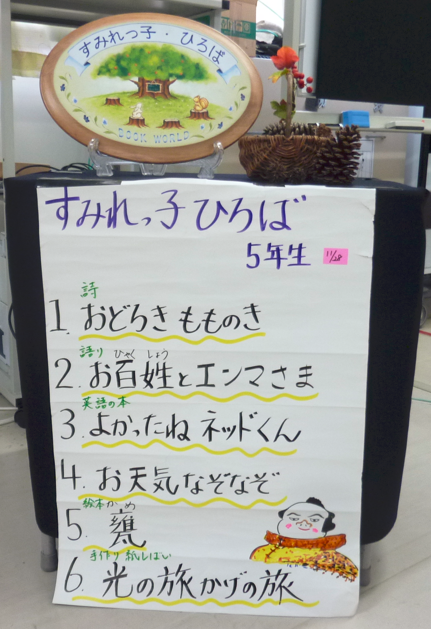 すみれっ子・ひろば
BOOK WORLD
すみれっ子ひろば
5年生 11/28
詩
1. おどろきもものき
語り ひゃくしょう
2. お百姓とエンマさま
英語の本
3. よかったね ネッドくん
4. お天気なぞなぞ
絵本 かめ
5. 甕
手作り紙しばい
6. 光の旅 かげの旅